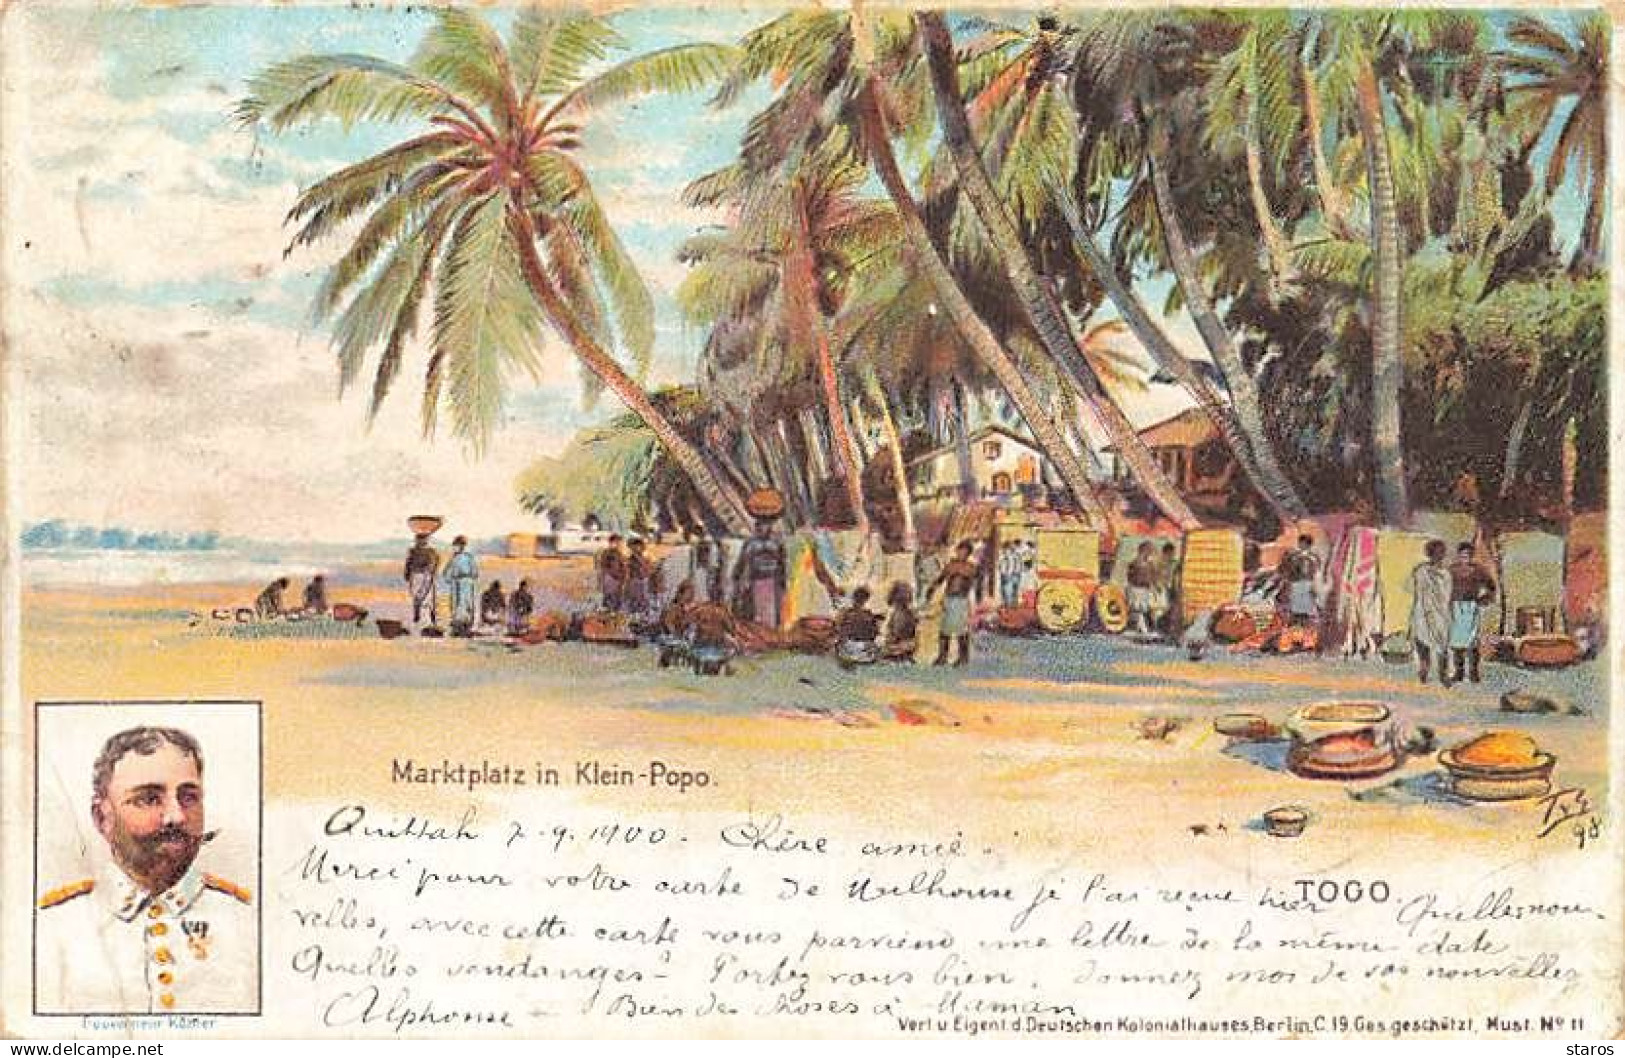 Marktplatz in Klein-Popo.
T v S
98
Quittah 7.9.1900. Chère amie.
Merci pour votre carte de Mulhouse je l'ai reçue hier
TOGO.
Quelles nou-
velles, avec cette carte vous parviens une lettre de la même date
Quelles vendanges? Portez vous bien. Donnez moi de vos nouvelles
Alphonse - Bien des choses à Maman
Gouverneur Köhler
Verl u Eigent.d.Deutschen Kolonialhauses,Berlin,C.19.Ges.geschützt, Must. No 11
staros